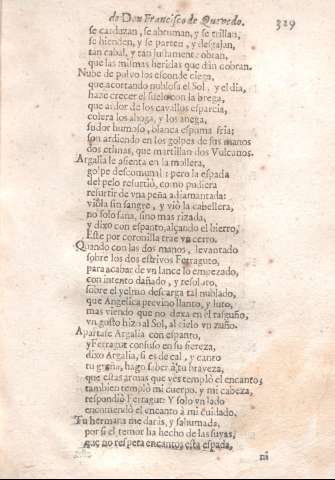 de Don Francisco de Quevedo. 329
se carduzan, se abruman, y se trillan,
se hienden, y se parten, y desgajan,
tan cabal, y tan justamente obran,
que las mismas heridas que dan cobran.
Nube de polvo los esconde ciega,
que acortando nublosa el Sol, y el dia,
haze crecer el suelo con la brega,
que ardor de los cavallos esparcia,
colera los ahoga, y los anega,
sudor humoso, blanca espuma fria;
son ardiendo en los golpes de sus manos
dos etnas, que martillan dos Vulcanos.
Argalia le assienta en la mollera,
golpe descomunal; pero la espada
del pelo resurtiò, como pudiera
resurtir de vna peña adiamantada:
viòla sin sangre, y viò la cabellera,
no solo sana, sino mas rizada,
y dixo con espanto, alçando el hierro,
Este por coronilla trae vn cerro.
Quando con las dos manos, levantado
sobre los dos estrivos Ferraguto,
para acabar de vn lance lo empezado,
con intento dañado, y resoluto,
sobre el yelmo descarga tal nublado,
que Angelica previno llanto, y luto,
mas viendo que no dexa en él rasguño,
vn gesto hizo al Sol, al cielo vn zuño.
Apartase Argalia con espanto,
y Ferragut confuso en su fiereza,
dixo Argalia, si es de cal, y canto
tu greña, hago saber à tu braveza,
que estas armas que ves templò el encanto;
tambien templò mi cuerpo, y mi cabeza,
respondiò Ferragut: Y solo vn lado
encomendò el encanto à mi cuidado.
Tu hermana me daràs, y sahumada,
por si el temor ha hecho de las suyas,
que no respeta encantos esta espada,
ni